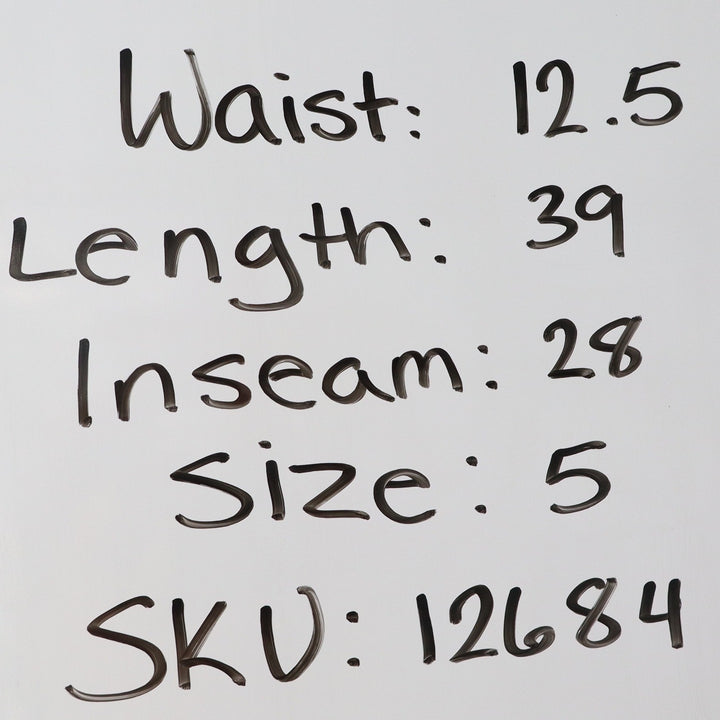 Waist: 12.5
Length: 39
Inseam: 28
Size: 5
SKU: 12684